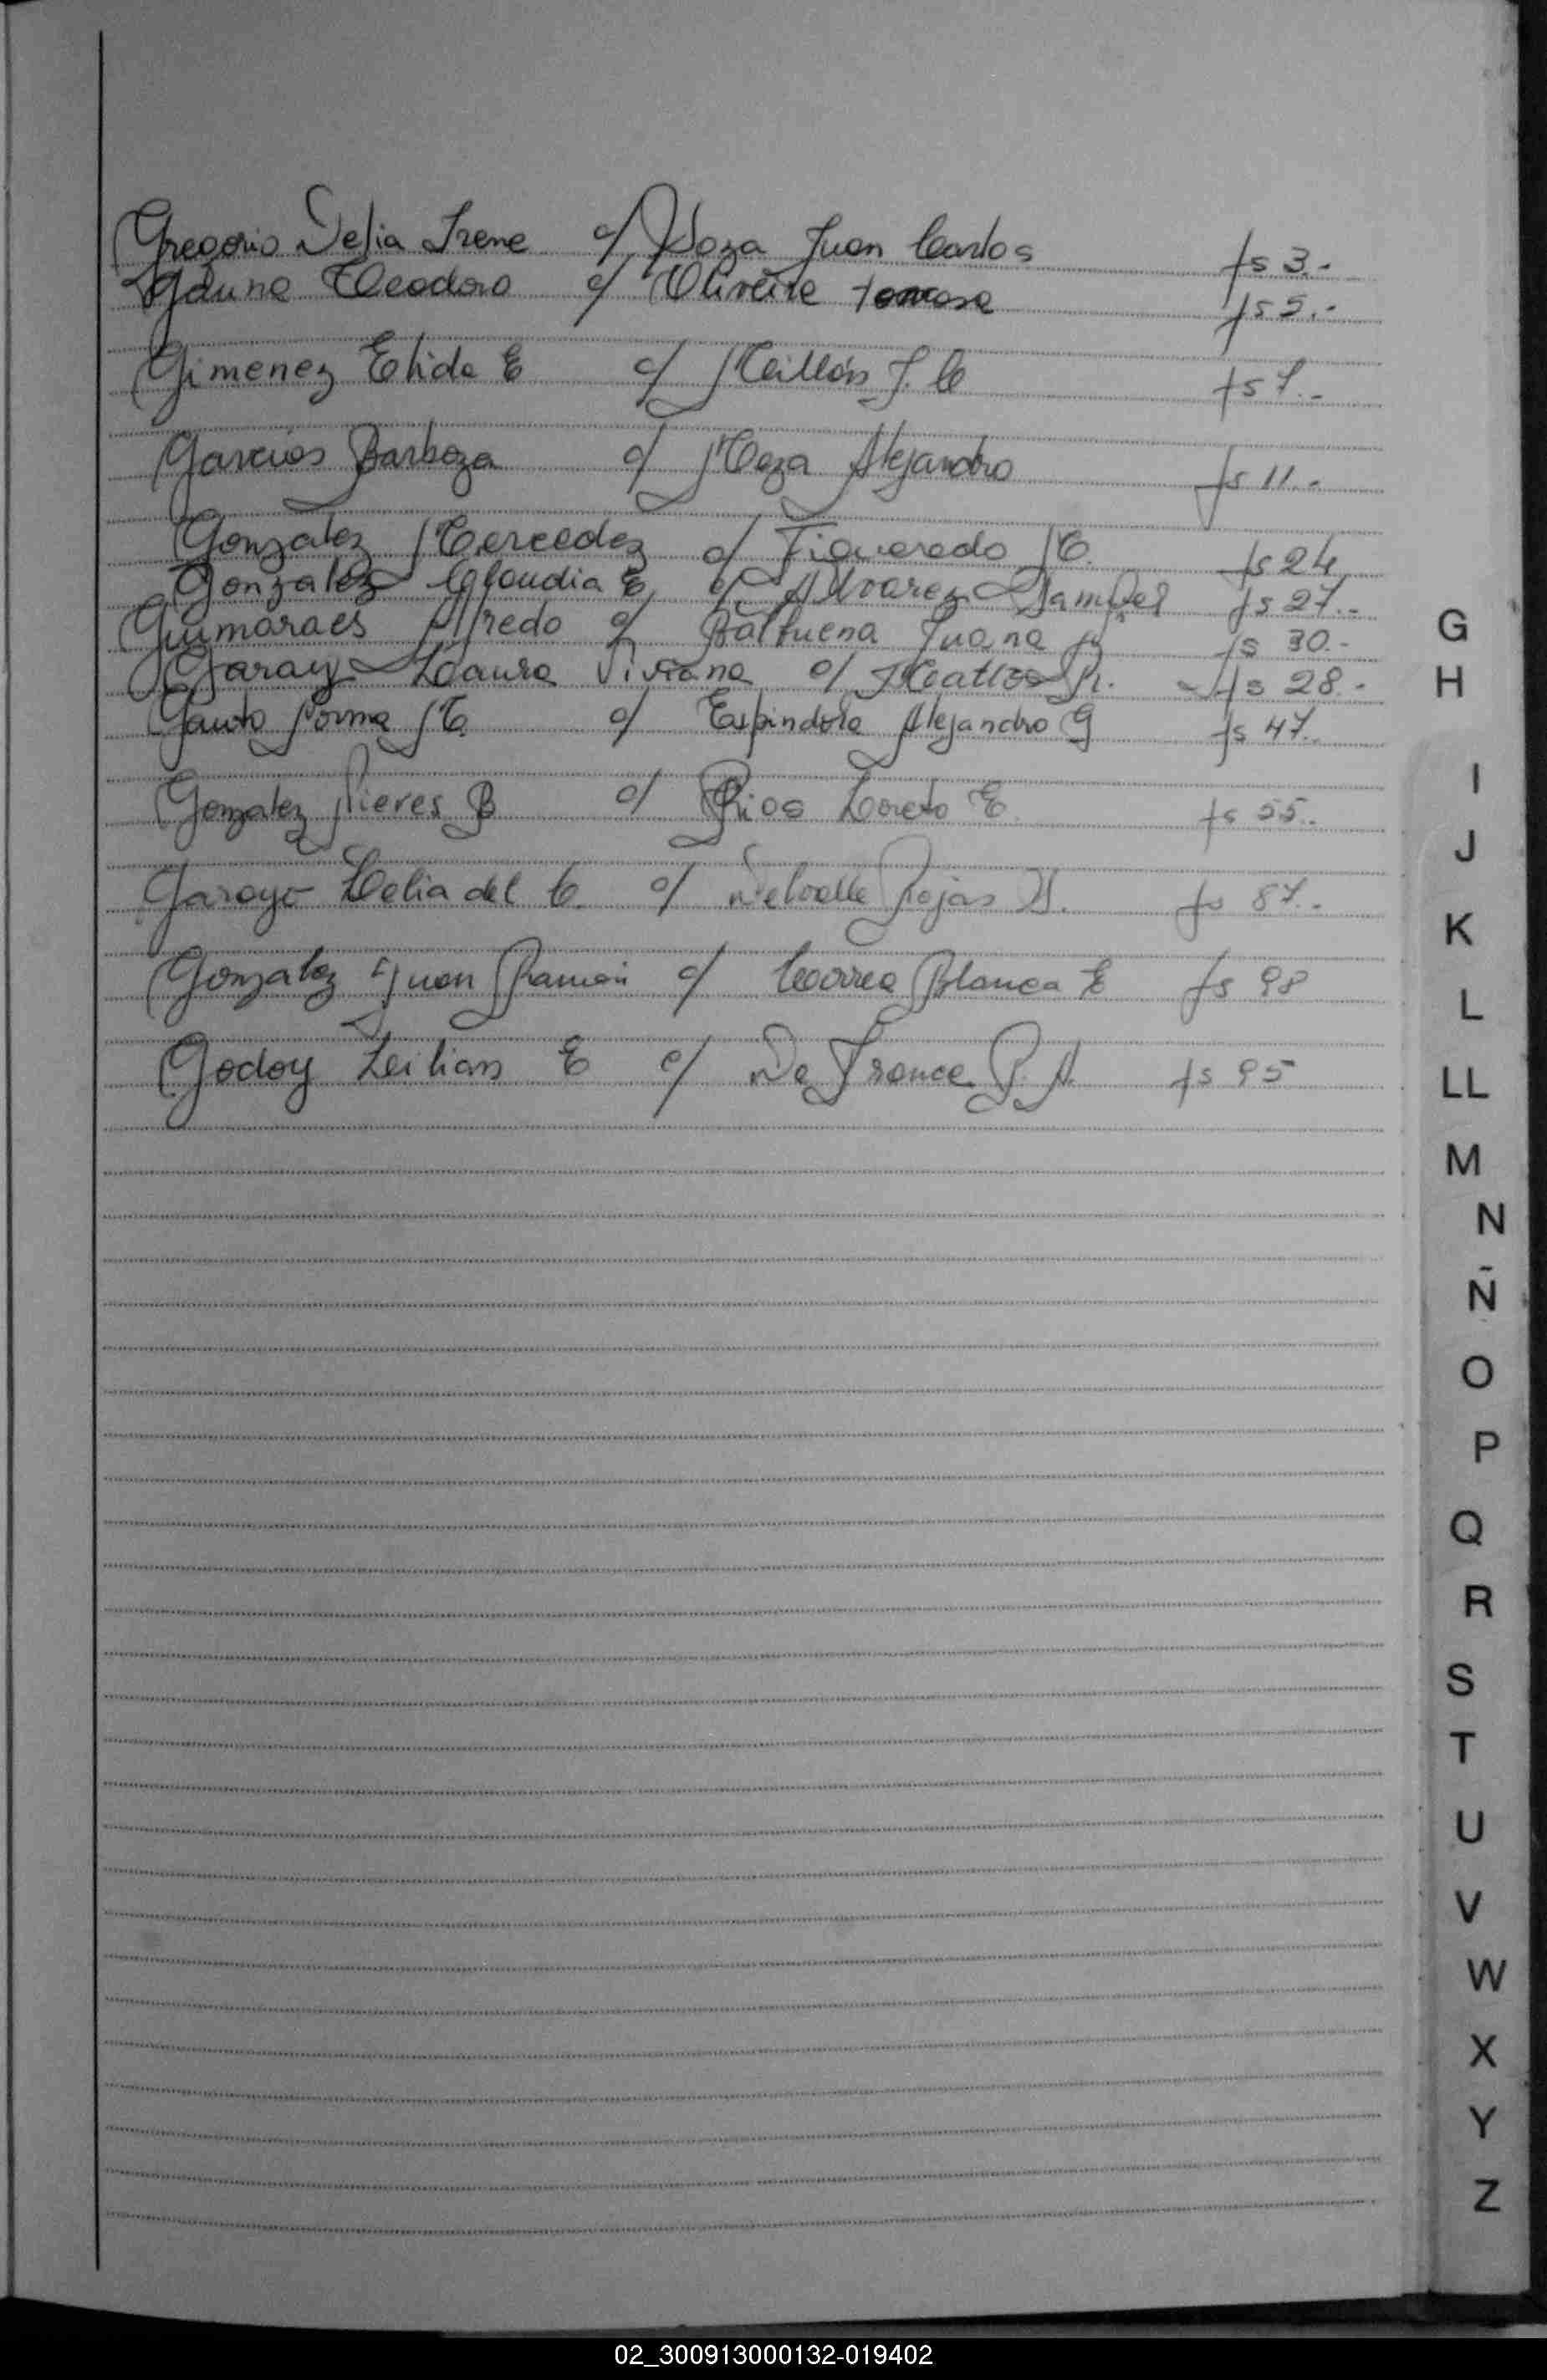 Gregorio Delia Irene c/ Soza Juan Carlos fs 3.-
Gauna Teodoro c/ Oliveira Tomasa fs 5.-
Gimenez Elida E c/ Millán J. C fs 7.-
Garcias Barboza c/ Meza Alejandro fs 11.-
Gonzalez Mercedez c/ Figueredo M. fs 24
Gonzalez Claudia E c/ Alvarez fs 27.-
Guimaraes Alfredo c/ Balbuena Juana fs 30.-
Garay Laura Viviana c/ R. fs 28.-
Gauto Norma M. c/ Espindola Alejandro G fs 47.
Gonzalez Nieves B c/ Rios Loreto E. fs 55.
Garayo Delia del C. c/ Delvalle Rojas fs 87.-
Gonzalez Juan Ramón c/ Correa Blanca E fs 98
Godoy Lilian E c/ De France R. A. fs 95
G
H
I
J
K
L
LL
M
N
Ñ
O
P
Q
R
S
T
U
V
W
X
Y
Z
02_300913000132-019402